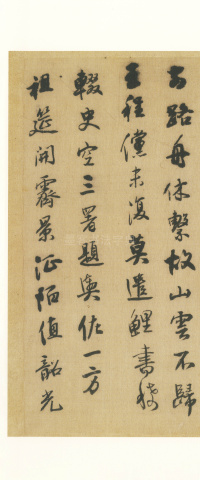 去路舟休繫故山雲不歸
王程儻未復莫遣鯉書稀
輟史空三署題輿佐一方
祖筵開霽景征陌值韶光